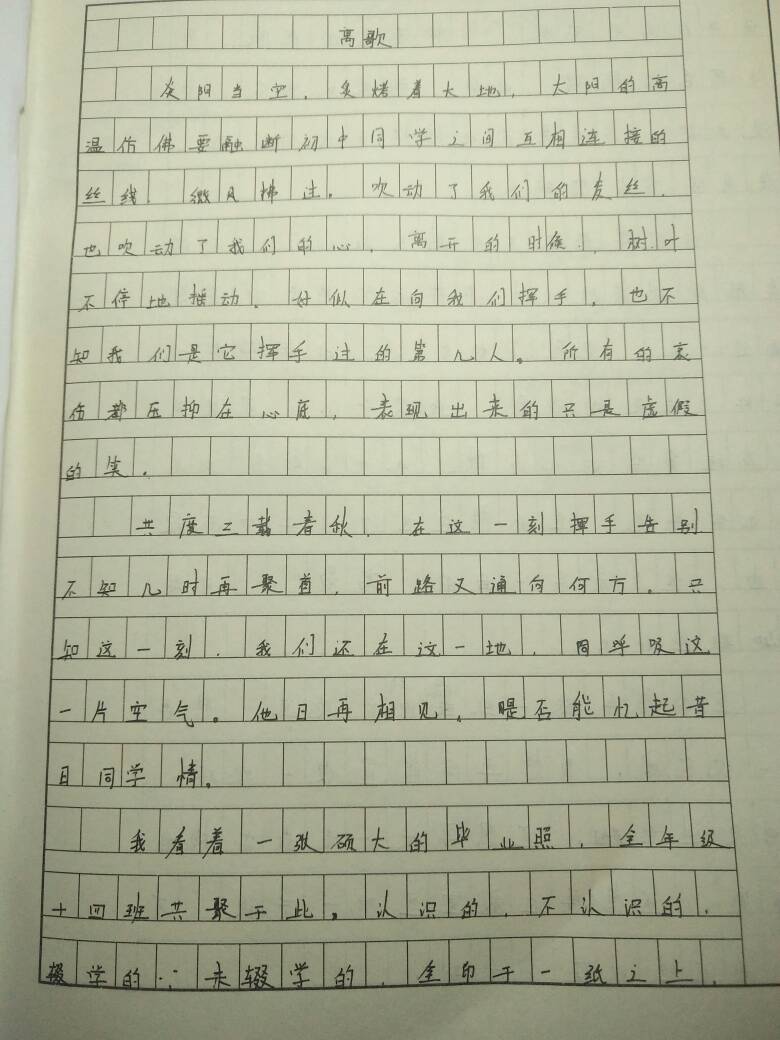 离歌
炎阳当空，炙烤着大地，太阳的高
温仿佛要融断初中同学之间互相连接的
丝线，微风拂过。吹动了我们的发丝，
也吹动了我们的心，离开的时候，树叶
不停地摇动，好似在向我们挥手，也不
知我们是它挥手过的第几人。所有的哀
伤都压抑在心底，表现出来的只是虚假
的笑。
共度三载春秋，在这一刻挥手告别
不知几时再聚首，前路又通向何方。只
知这一刻，我们还在这一地，同呼吸这
一片空气。他日再相见，是否能忆起昔
日同学情。
我看着一张硕大的毕业照，全年级
十四班共聚于此。认识的，不认识的，
辍学的，未辍学的，全印于一纸之上，